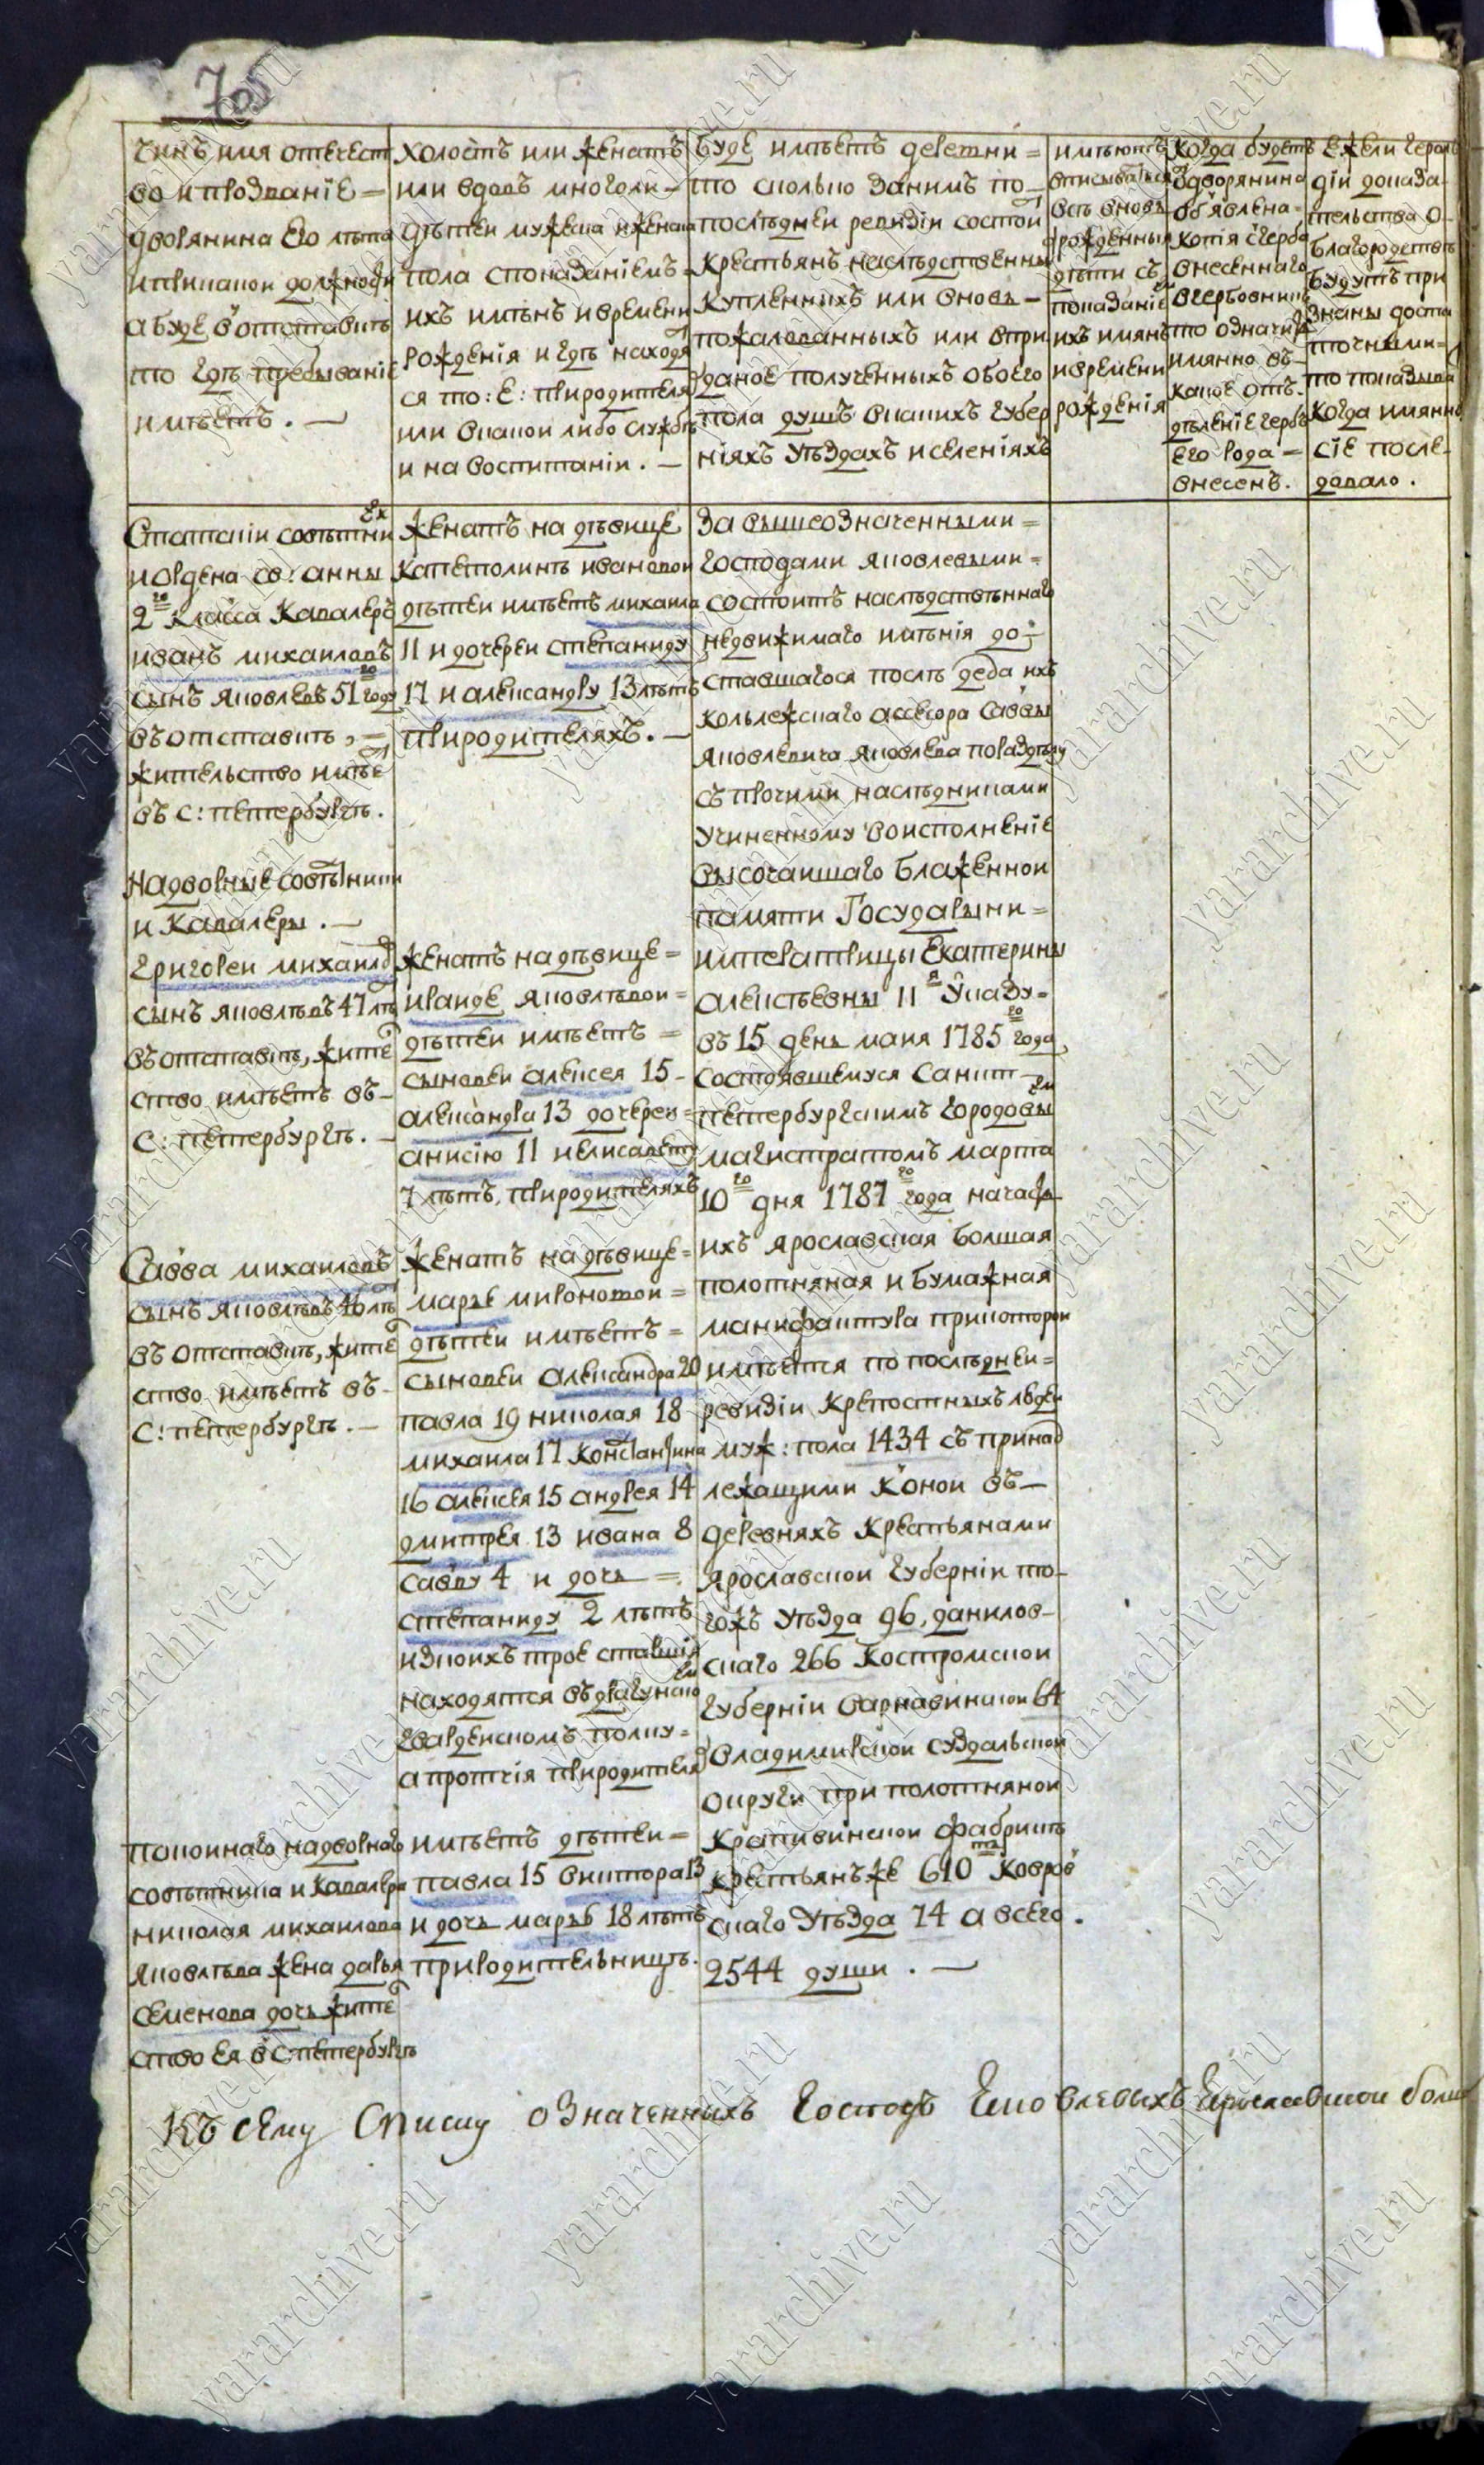 705
чинъ имя отечест
во и прозвание =
дворянина его лѣта
и при какой должности
а буде в отставкѣ
то гдѣ пребываніе
имѣетъ. —
холостъ или женатъ
или вдовъ многоли —
дѣтей мужеска и женска
пола с показаніемъ
ихъ имѣнъ и времени
рожденія и гдѣ находя
ся то: е: при родителя
или в какой либо службѣ
и на воспитаніи. —
буде имѣетъ деревни =
то сколько за нимъ по —
послѣдней ревизіи состои
крестьянъ наслѣдственны
купленныхъ или вновь —
пожалованныхъ или в при
даное полученныхъ обоего
пола душъ в какихъ губер
ніяхъ уѣздахъ и селеніяхъ
имѣютъ
вписыватся
всѣ вновь
рожденныя
дѣти съ
показаніе
ихъ имянъ
и времени
рожденія
когда будетъ
у дворянина
объявлена
копія с герба
внесеннаго
в гербовникъ
то означить
имянно въ —
какое отъ-
дѣленіе гербъ
его рода =
внесенъ.
ежели герол
діи доказа
тельства о
благородствѣ
будутъ при
знаны доста
точными =
то показыва
когда имянно
сіе послѣ-
довало.
Статскіи совѣтни
и ордена св: анны
2го класса кавалеръ
иванъ михаиловъ
сынъ яковлевъ 51 году
въ отставкѣ, =
жительство имѣе
въ С: петербургѣ.
Надворные совѣтники
и кавалеры. —
григореи михаило
сынъ яковлѣвъ 47 лѣ
въ отставкѣ, жите
ство имѣетъ въ —
С: петербургѣ. —
Савва михаиловъ
сынъ яковлѣвъ 46 лѣ
въ отставкѣ, жите
ство имѣетъ въ —
С: петербургѣ. —
покоинаго надворнаго
совѣтника и кавалера
николая михаилова
яковлѣва жена дарья
семенова дочь жите
ство ея в С петербургѣ
женатъ на дѣвице
капетолинѣ ивановои
дѣтеи имѣетъ михаила
11 и дочереи степаниду
17 и александру 13 лѣтъ
при родителяхъ. —
женатъ на дѣвице =
ираиде яковлѣвои =
дѣтеи имѣетъ =
сыновеи алексея 15 —
александра 13 дочереи =
анисію 11 и елисавету
7 лѣтъ, при родителяхъ
женатъ на дѣвице =
марье мироновои =
дѣтеи имѣетъ =
сыновеи александра 20
павла 19 николая 18
михаила 17 константина
16 алексея 15 андрея 14
дмитрея 13 ивана 8
савву 4 и дочь =
степаниду 2 лѣтъ
изкоихъ трое старшія
находятся въ драгунско
гвардеискомъ полку =
а протчія при родителя
имѣетъ дѣтеи =
павла 15 виктора 13
и дочь марью 18 лѣтъ
при родительницѣ.
за вышеозначенными =
господами яковлевыми =
состоитъ наслѣдственнаго
недвижимаго имѣнія до —
ставшагося послѣ деда ихъ
кольлежскаго ассесора саввы
яковлевича яковлева по раздѣлу
съ прочими наслѣдниками
учиненному во исполненіе
высочаишаго блаженнои
памяти Государыни =
императрицы Екатерины
алексѣевны II я указу =
въ 15 день маія 1785 го года,
состоявшемуся санкт —
петербургскимъ городовы
магистратомъ марта
10 го дня 1787 го года началь
ихъ ярославская болшая
полотняная и бумажная
манифактура при которои
имѣется по послѣднеи =
ревизіи крепостныхъ людеи
муж: пола 1434 съ принад
лежащими к онои въ —
деревняхъ крестьянами
ярославскои губерніи то —
гожъ уѣзда 96, данилов —
скаго 266 костромскои
губерніи варнавинскои 64
владимирскои суздальскои
округи при полотнянои
крапивинскои фабрикѣ
крестьянъ же 610 ковров
скаго уѣзда 74 а всего.
2544 души. —
Къ сему списку означенныхъ господъ Яковлевыхъ Ярославскои болш